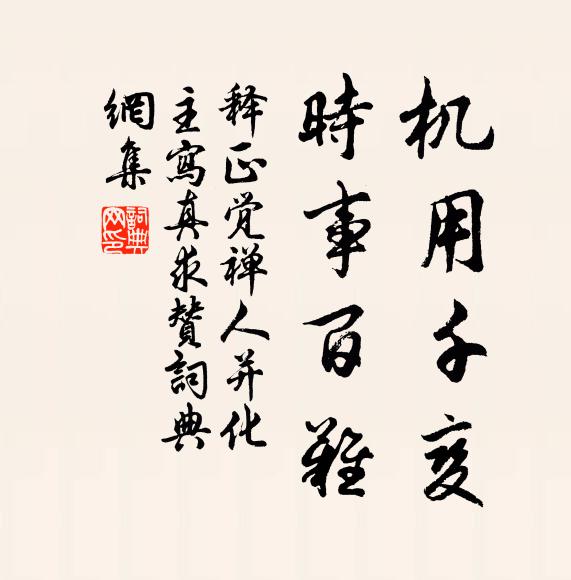 机用千变
時事百難
释正觉禅人并化
主寫真求賛詞典
網集
詞典网印